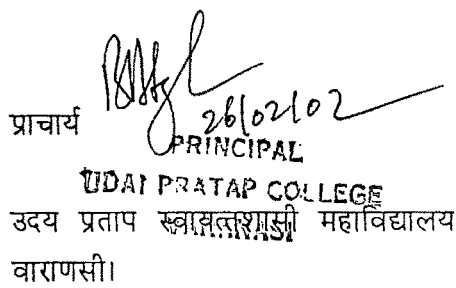 प्राचार्य
26/02/02
PRINCIPAL
UDAI PRATAP COLLEGE
उदय प्रताप स्वायत्तशासी महाविद्यालय
VARANASI
वाराणसी।